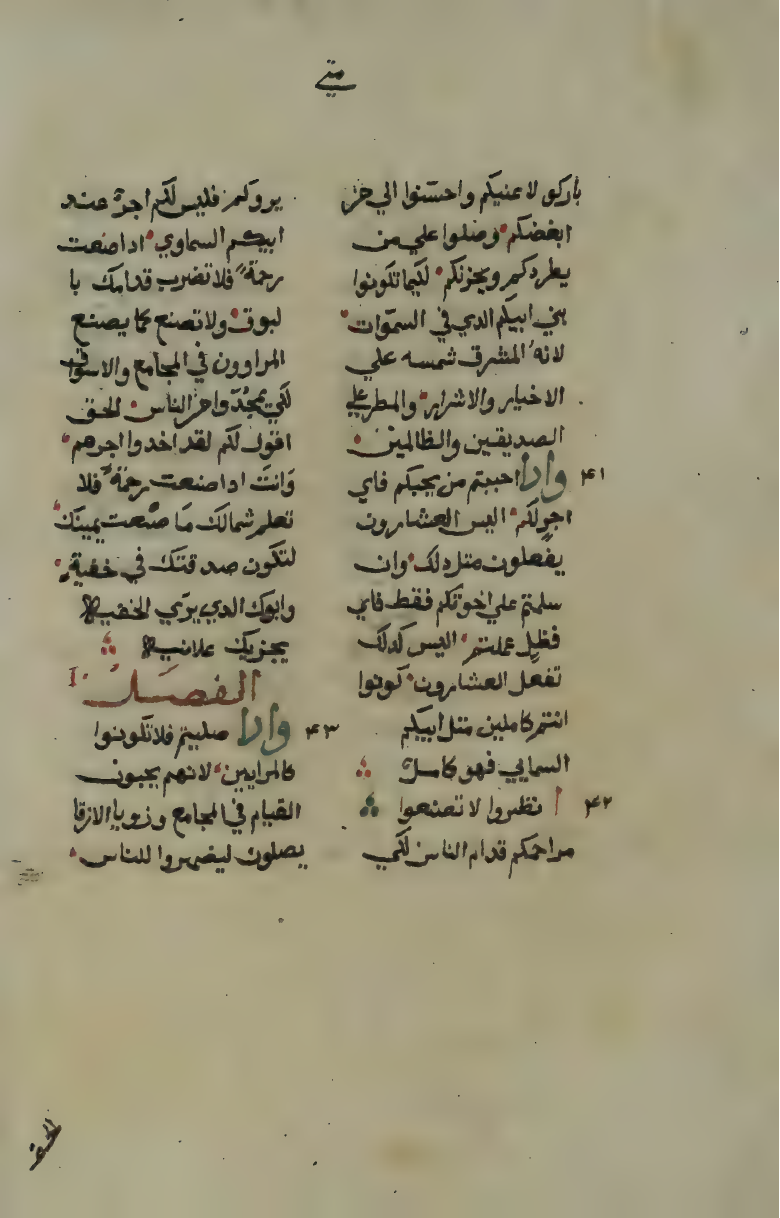 متي
باركو لاعنيكم واحسنوا الي من
ابغضكم وصلوا علي من
يطردكم ويحزنكم لكيما تكونوا
بني ابيكم الدي في السموات
لانه المشرق شمسه علي
الاخيار والاشرار والمطر علي
الصديقين والظالمين
۴۱ وادا احببتم من يحبكم فاي
اجر لكم اليس العشارون
يفعلون متل دلك وان
سلمتم علي اخوتكم فقط فاي
فضل عملتم اليس كدلك
تفعل العشارون كونوا
انتم كاملين متل ابيكم
السمايي فهو كامل
۴۲ انظروا لا تصنعوا
مراحمكم قدام الناس لكي
يروكم فليس لكم اجر عند
ابيكم السماوي ادا صنعت
رحمة فلا تضرب قدامك با
لبوق ولا تصنع كما يصنع
المراوون في المجامع والاسواق
لكي يمجدوا من الناس الحق
اقول لكم لقد اخدوا اجرهم
وانت ادا صنعت رحمة فلا
تعلم شمالك ما صنعت يمينك
لتكون صدقتك في خفية
وابوك الدي يري الخفية
يجزيك علانية
الفصل
۴۳ وادا صليتم فلا تكونوا
كالمرايين لانهم يحبون
القيام في المجامع وزوايا الازقا
يصلون ليضهروا للناس
الحق